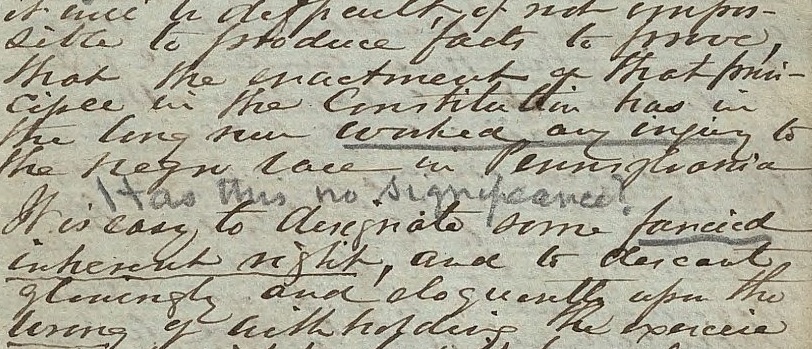 it will be difficult, if not impos-
sible to produce facts to prove,
that the enactment of that prin-
ciple in the Constitution has in
the long run worked any injury to
the negro race in Pennsylvania
Has this no significance?
It is easy to designate some fancied
inherent right, and to descant
glowingly and eloquently upon the
wrong of withholding the exercise